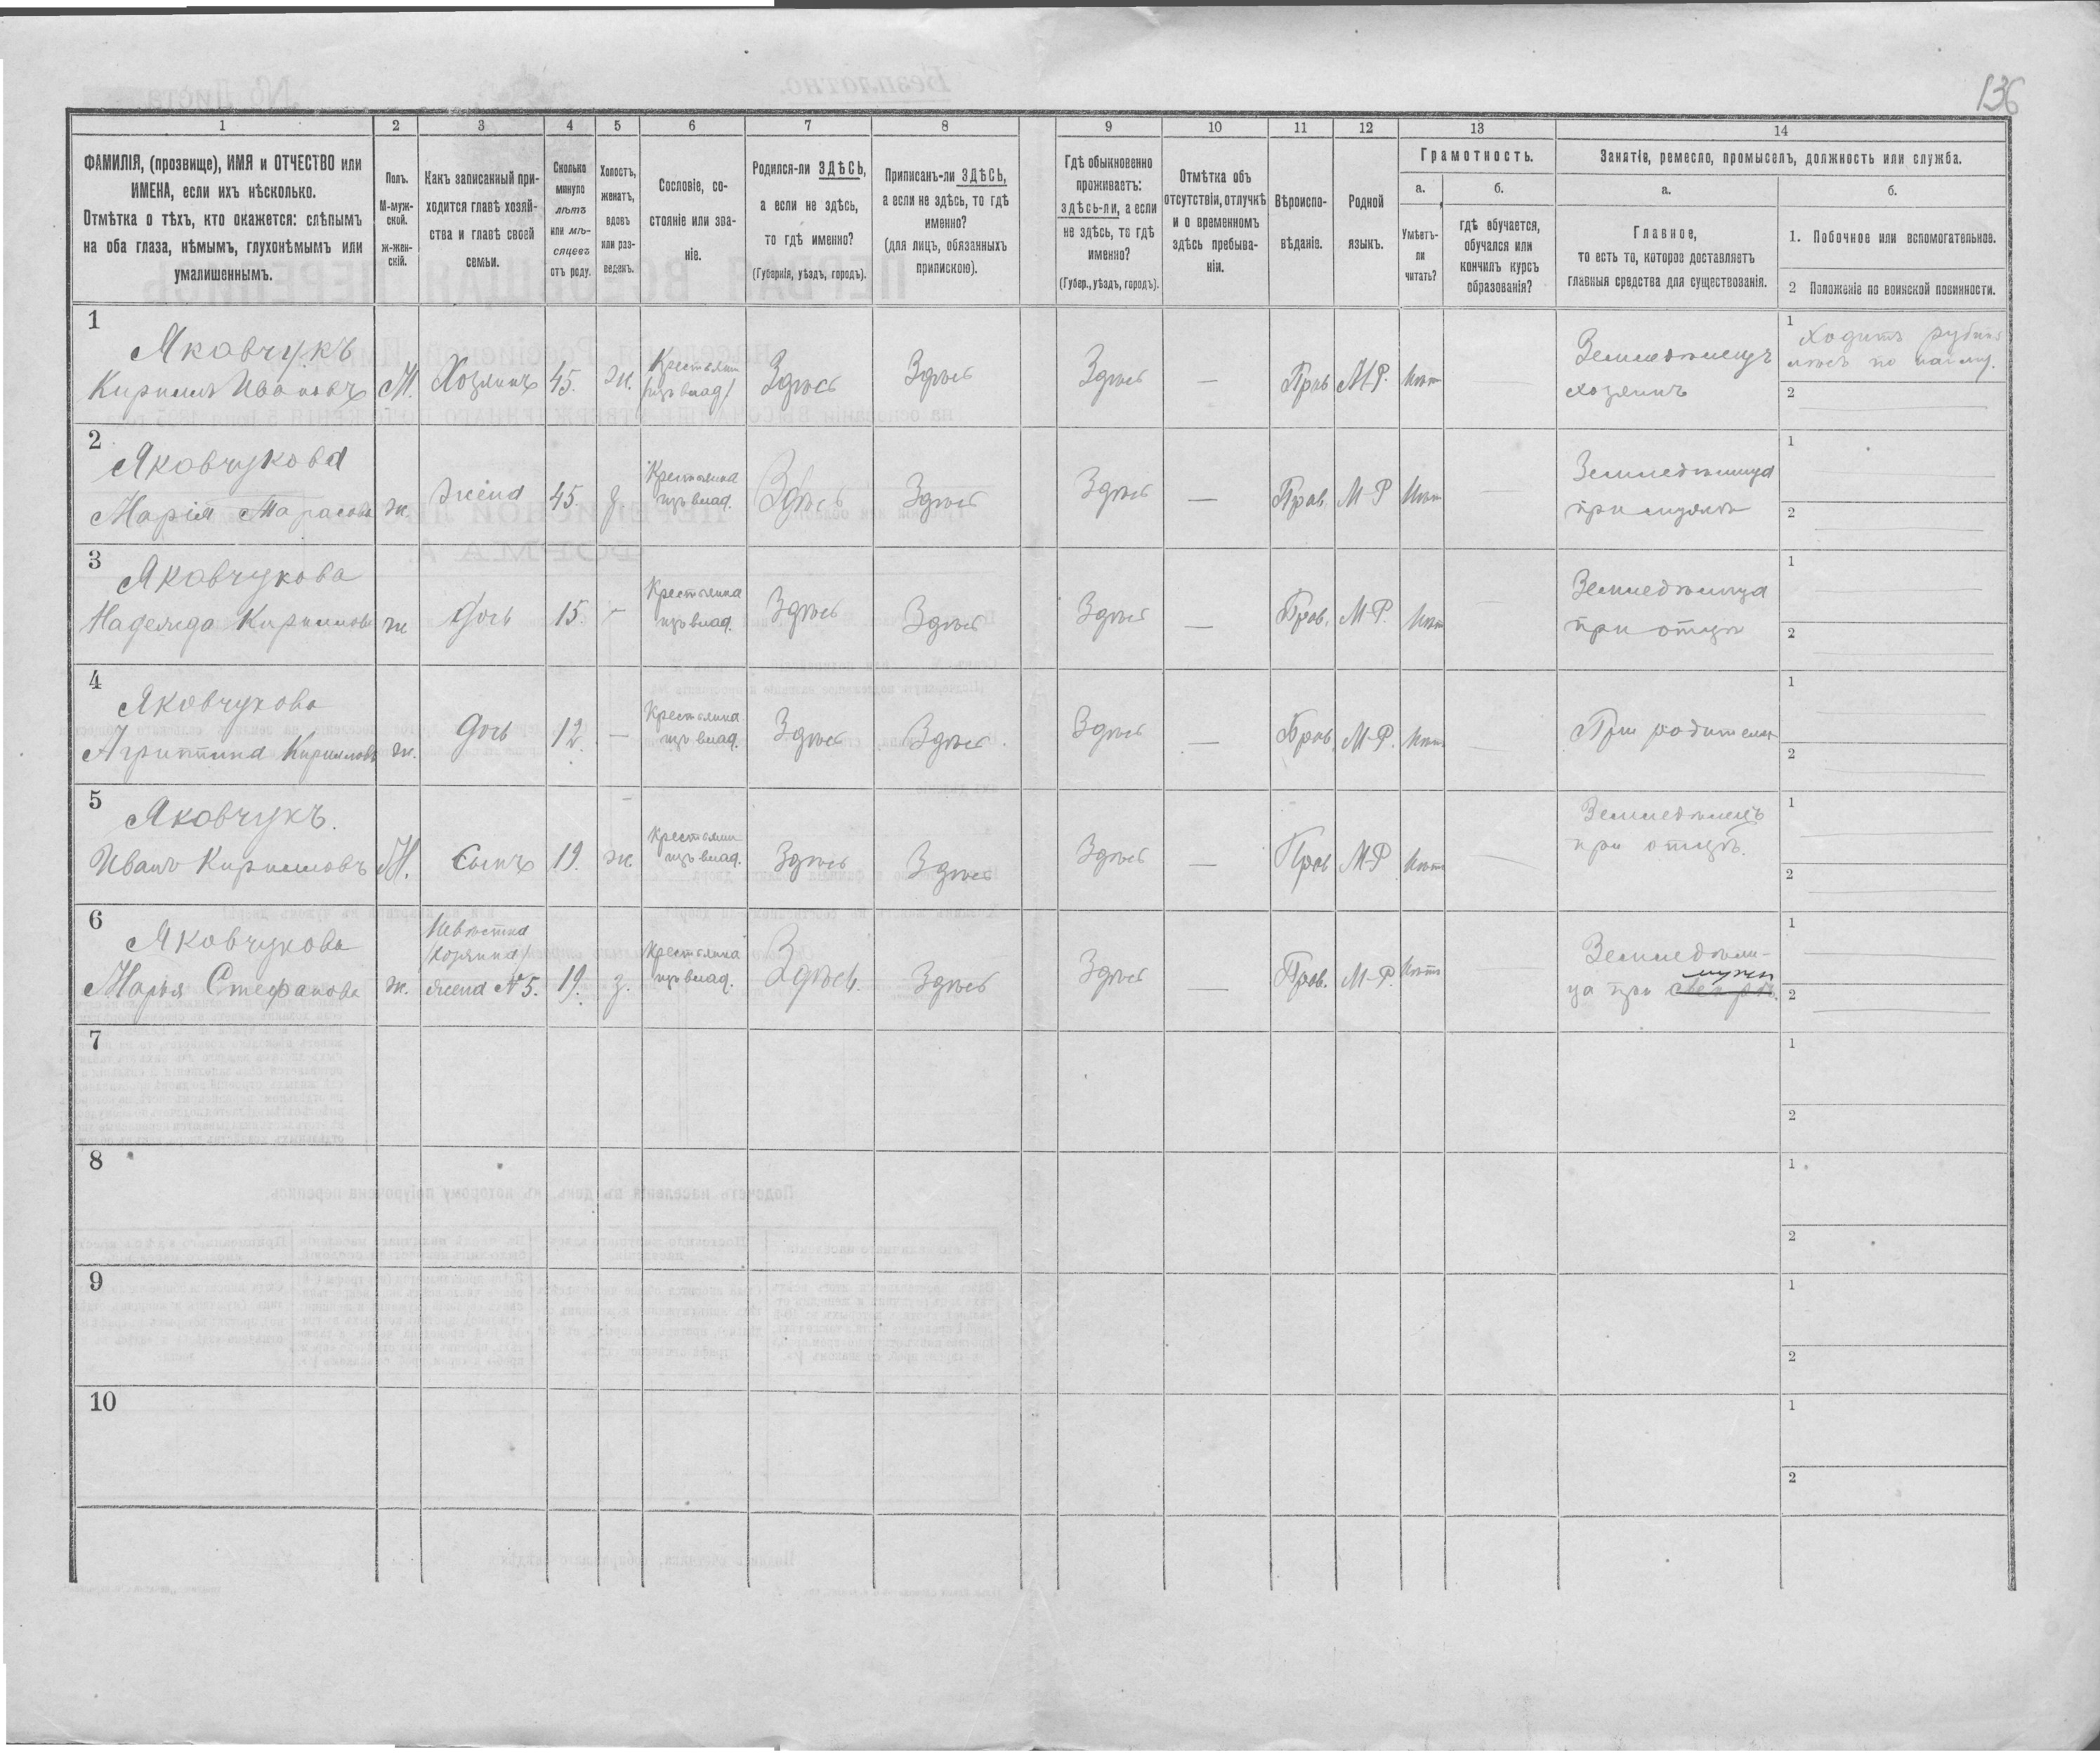 136
1 2 3 4 5 6 7 8 9 10 11 12 13 14
ФАМИЛІЯ, (прозвище), ИМЯ и ОТЧЕСТВО или
ИМЕНА, если ихъ нѣсколько.
Отмѣтка о тѣхъ, кто окажется: слѣпымъ
на оба глаза, нѣмымъ, глухонѣмымъ или
умалишеннымъ.
Полъ.
М-муж-
ской.
ж-жен-
скій.
Какъ записанный при-
ходится главѣ хозяй-
ства и главѣ своей
семьи.
Сколько
минуло
лѣтъ
или мѣ-
сяцевъ
отъ роду.
Холостъ,
женатъ,
вдовъ
или раз-
веденъ.
Сословіе, со-
стояніе или зва-
ніе.
Родился-ли ЗДѢСЬ,
а если не здѣсь,
то гдѣ именно?
(Губернія, уѣздъ, городъ).
Приписанъ-ли ЗДѢСЬ,
а если не здѣсь, то гдѣ
именно?
(для лицъ, обязанныхъ
припискою).
Гдѣ обыкновенно
проживаетъ:
здѣсь-ли, а если
не здѣсь, то гдѣ
именно?
(Губер., уѣздъ, городъ).
Отмѣтка объ
отсутствіи, отлучкѣ
и о временномъ
здѣсь пребыва-
ніи.
Вѣроиспо-
вѣданіе.
Родной
языкъ.
Грамотность.
а.
Умѣетъ-
ли
читать?
б.
гдѣ обучается,
обучался или
кончилъ курсъ
образованія?
Занятіе, ремесло, промыселъ, должность или служба.
а.
Главное,
то есть то, которое доставляетъ
главныя средства для существованія.
б.
1. Побочное или вспомогательное.
2 Положеніе по воинской повинности.
1
Яковчукъ
Кириллъ Ивановъ М. Хозяинъ 45. ж. Крестьян. /изъ влад/ Здѣсь Здѣсь Здѣсь — Прав М-Р. Нѣт
Земледѣлецъ
хозяинъ
1 Ходитъ
по найму.
2
2
Яковчукова
Марія Тарасова ж. Жена 45. з. Крестьянка изъ влад. Здѣсь Здѣсь Здѣсь — Прав. М-Р Нѣт
Земледѣлица
при мужѣ
1
2
3
Яковчукова
Надежда Кириллов ж Дочь 15. — Крестьянка изъ влад. Здѣсь Здѣсь Здѣсь — Прав. М-Р. Нѣт
Земледѣлица
при отцѣ
1
2
4
Яковчукова
Агриппина Кириллов ж. Дочь 12. — Крестьянка изъ влад. Здѣсь Здѣсь Здѣсь — Прав М-Р. Нѣт
При родителях
1
2
5
Яковчукъ.
Иванъ Кирилловъ М. Сынъ 19. ж. Крестьян изъ влад. Здѣсь Здѣсь Здѣсь — Прав М-Р Нѣт
Земледѣлецъ
при отцѣ.
1
2
6
Яковчукова
Марья Стефанова ж. Невѣстка /хозяина/ жена №5. 19. з. Крестьянка изъ влад. Здѣсь. Здѣсь Здѣсь — Прав. М-Р. Нѣтъ
Земледѣли-
мужѣ
ца при свекрѣ.
1
2
7
1
2
8
1
2
9
1
2
10
1
2